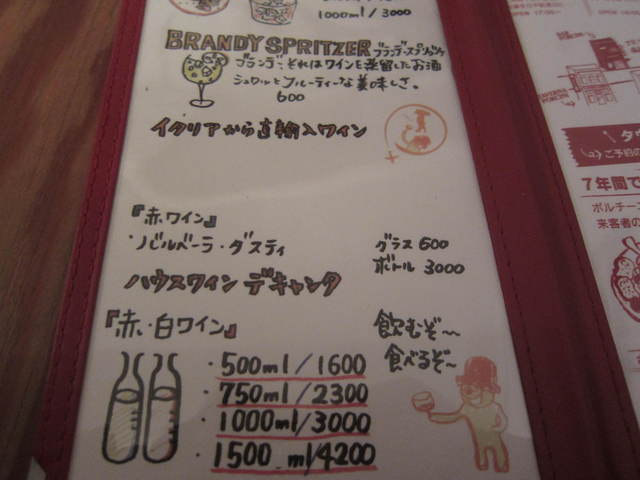 1000ml/3000
BRANDY SPRITZER ブランデースプリッツァ
ブランデー、それはワインを蒸留したお酒
シュワッとフルーティーな美味しさ。
600
イタリアから直輸入ワイン
『赤ワイン』
・バルベーラ・ダスティ グラス 600
ボトル 3000
ハウスワイン デキャンタ
『赤・白ワイン』
飲むぞ〜
食べるぞ〜
・500ml/1600
・750ml/2300
・1000ml/3000
・1500ml/4200
7年間で
ポルチーニ
来客者の